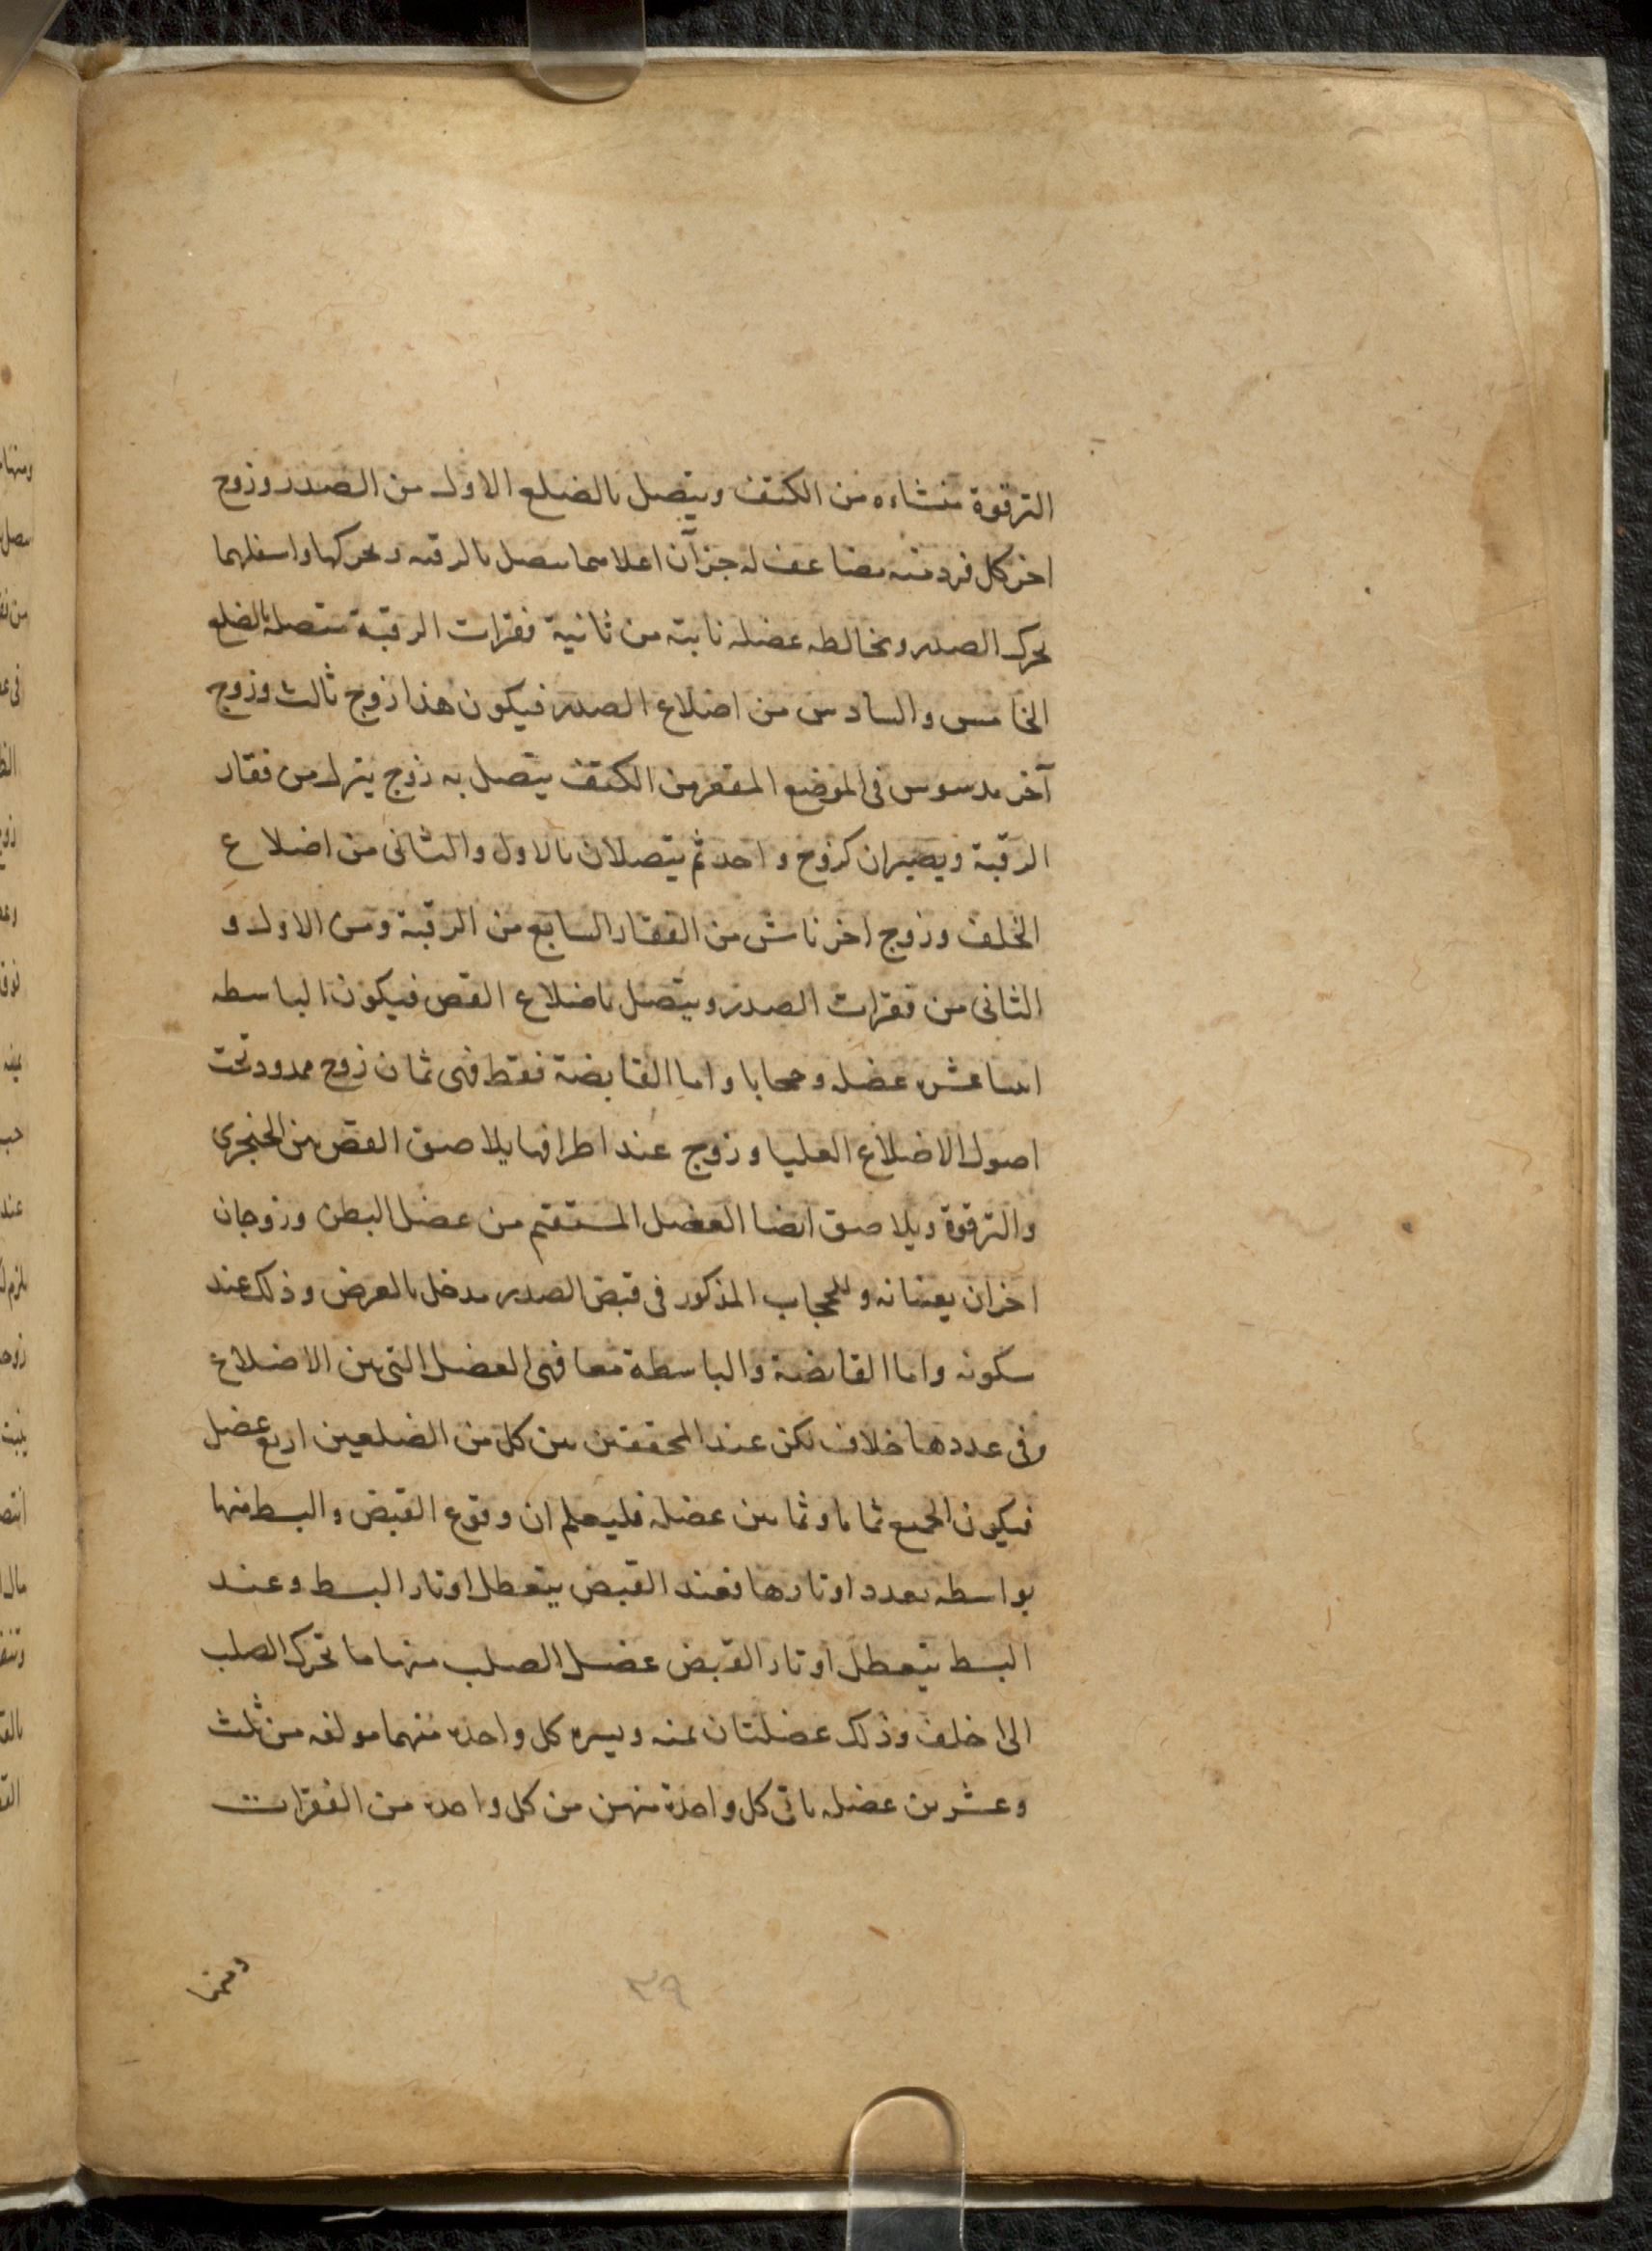 الترقوة منشاءه من الكتف ويتصل بالضلع الاول من الصدر وزوج
اخر كل فرد منه مضاعف له جزآن اعلاهما يتصل بالرقبه ويحركها واسفلهما
يحرك الصدر ويخالطه عضله نابته من ثانية فقرات الرقبة متصله بالضلع
الخامس والسادس من اضلاع الصدر فيكون هذا زوج ثالث وزوج
آخر مدسوس فى الموضع المقعر من الكتف يتصل به زوج ينزل من فقار
الرقبة ويصيران كزوج واحد ثم يتصلان بالاول والثانى من اضلاع
الخلف وزوج اخر ناش من الفقار السابع من الرقبة ومن الاول و
الثانى من فقرات الصدر ويتصل باضلاع القص فيكون الباسطه
اثنا عشر عضله وحجابا واما القابضة فقط فهى ثمان زوج ممدود تحت
اصول الاضلاع العليا وزوج عند اطرافها يلاصق القص بين الخنجرى
والترقوة ويلاصق ايضا العضل المستقيم من عضل البطن وزوجان
اخران يعينانه وللحجاب المذكور فى قبض الصدر مدخل بالعرض وذلك عند
سكونه واما القابضة والباسطة معا فهى العضل التى بين الاضلاع
وفى عددها خلاف لكن عند المحققين بين كل من الضلعين اربع عضل
فيكون الجميع ثمانا وثمانين عضله فليعلم ان وقوع القبض والبسط منها
بواسطه تعدد اوتارها فعند القبض يتعطل اوتار البسط وعند
البسط يتعطل اوتار القبض عضل الصلب منها ما تحرك الصلب
الى خلف وذلك عضلتان يمنه ويسره كل واحده منهما مولفه من ثلث
وعشرين عضله ياتى كل واحدة منهن من كل واحده من الفقرات
ومنها
٣٩